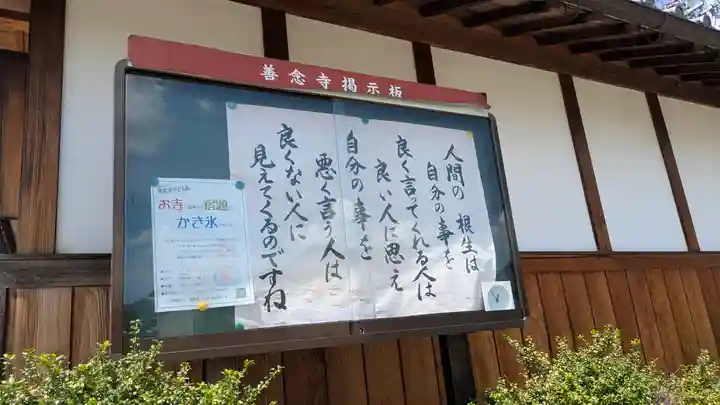 善念寺掲示板
人間の根生は
自分の事を
良く言ってくれる人は
良い人に思え
自分の事を
悪く言う人は
良くない人に
見えてくるのですね
お寺 宿題
かき氷